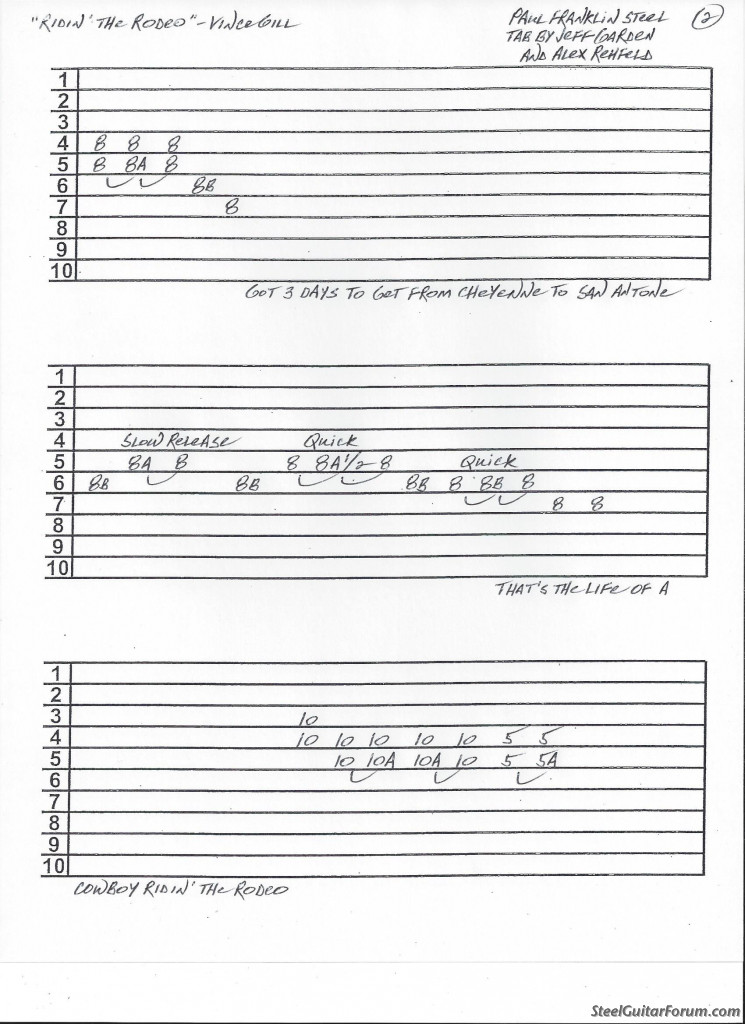 "RIDIN' THE RODEO" - VINCE GILL
PAUL FRANKLIN STEEL
TAB BY JEFF GARDEN
AND ALEX REHFELD
2
1
2
3
4 8 8 8
5 8 8A 8
6 8B
7 8
8
9
10
GOT 3 DAYS TO GET FROM CHEYENNE TO SAN ANTONE
1
2
3
4 SLOW RELEASE QUICK
5 8A 8 8 8A1/2 8 QUICK
6 8B 8B 8B 8 8B 8
7 8 8
8
9
10
THAT'S THE LIFE OF A
1
2
3 10
4 10 10 10 10 10 5 5
5 10 10A 10A 10 5 5A
6
7
8
9
10
COWBOY RIDIN' THE RODEO
SteelGuitarForum.com